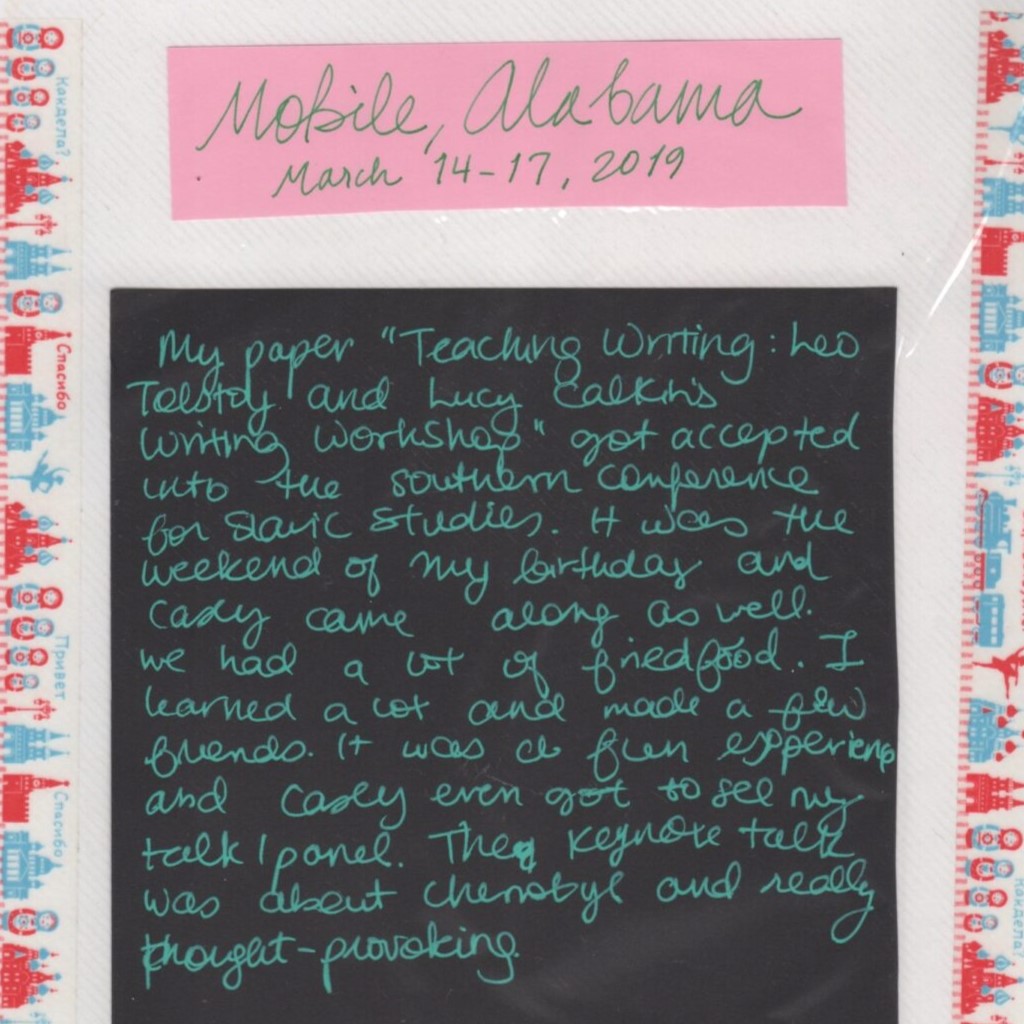 Mobile, Alabama
March 14-17, 2019
My paper "Teaching Writing: Leo
Tolstoy and Lucy Calkin's
Writing Workshop" got accepted
into the southern conference
for Slavic Studies. It was the
weekend of my birthday and
Casey came along as well.
we had a lot of fried food. I
learned a lot and made a few
friends. It was a fun experience
and Casey even got to see my
talk/panel. The keynote talk
was about Chernobyl and really
thought-provoking.
Какдела?
Спасибо
Привет
Спасибо
Какдела?